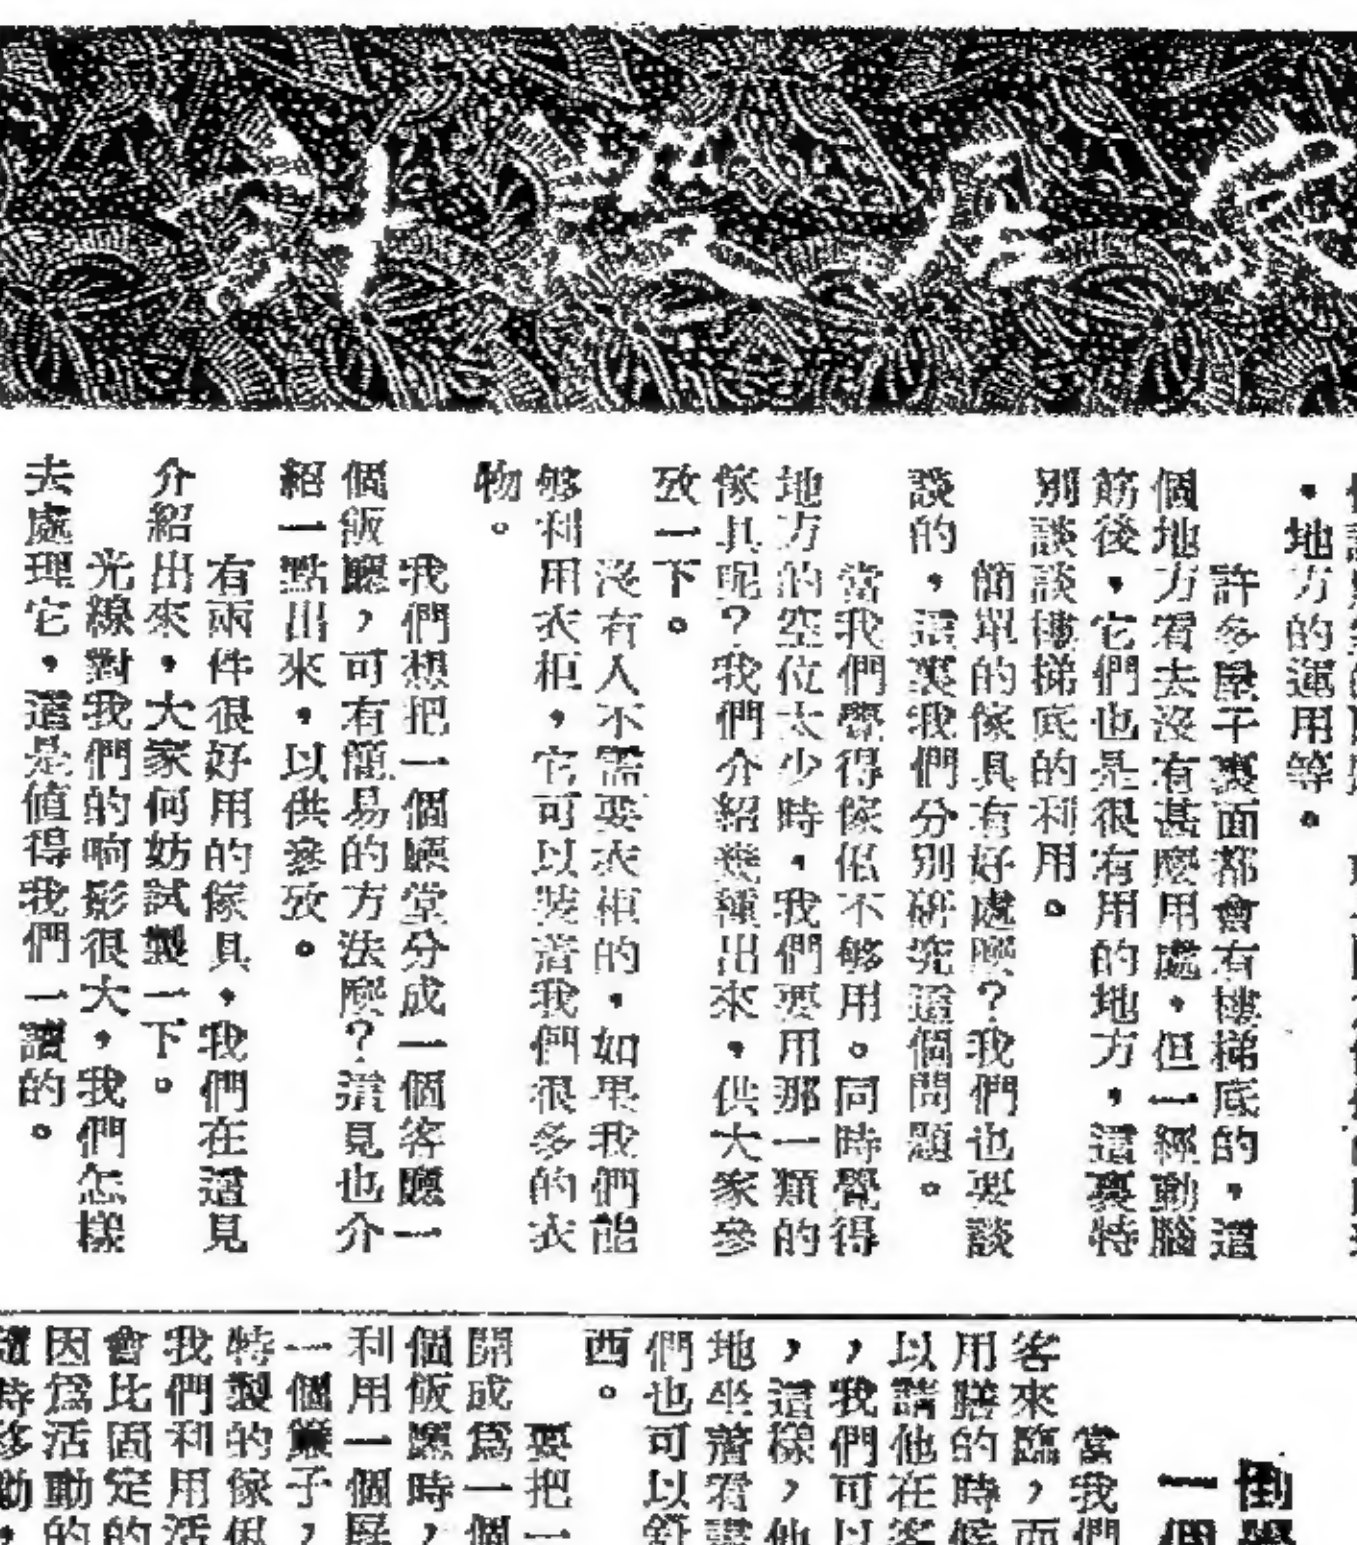 家居設計
・地方的運用等。
許多屋子裏面都會有樓梯底的，這
個地方看去沒有甚麼用處，但一經動腦
筋後，它們也是很有用的地方，這裏特
別談談樓梯底的利用。
簡單的傢具有好處麼？我們也要談
談的，這裏我們分別研究這個問題。
當我們覺得傢俬不够用。同時覺得
地方的空位太少時，我們要用那一類的
傢具呢？我們介紹幾種出來，供大家參
攷一下。
沒有人不需要衣柜的，如果我們能
够利用衣柜，它可以裝着我們很多的衣
物。
我們想把一個廳堂分成一個客廳一
個飯廳，可有簡易的方法麼？這見也介
紹一點出來，以供參攷。
有兩件很好用的傢具，我們在這見
介紹出來，大家何妨試製一下。
光線對我們的响影很大，我們怎樣
去處理它，這是值得我們一讀的。
一個
當我們
客來臨，而
用膳的時候
以請他在客
，我們可以
，這樣，他
地坐着看書
們也可以
西。
要把一
開成爲一個
個飯廳時，
利用一個屏
一個簾子，
特製的傢俬
我們利用活
會比固定的
因爲活動的
隨時移動，